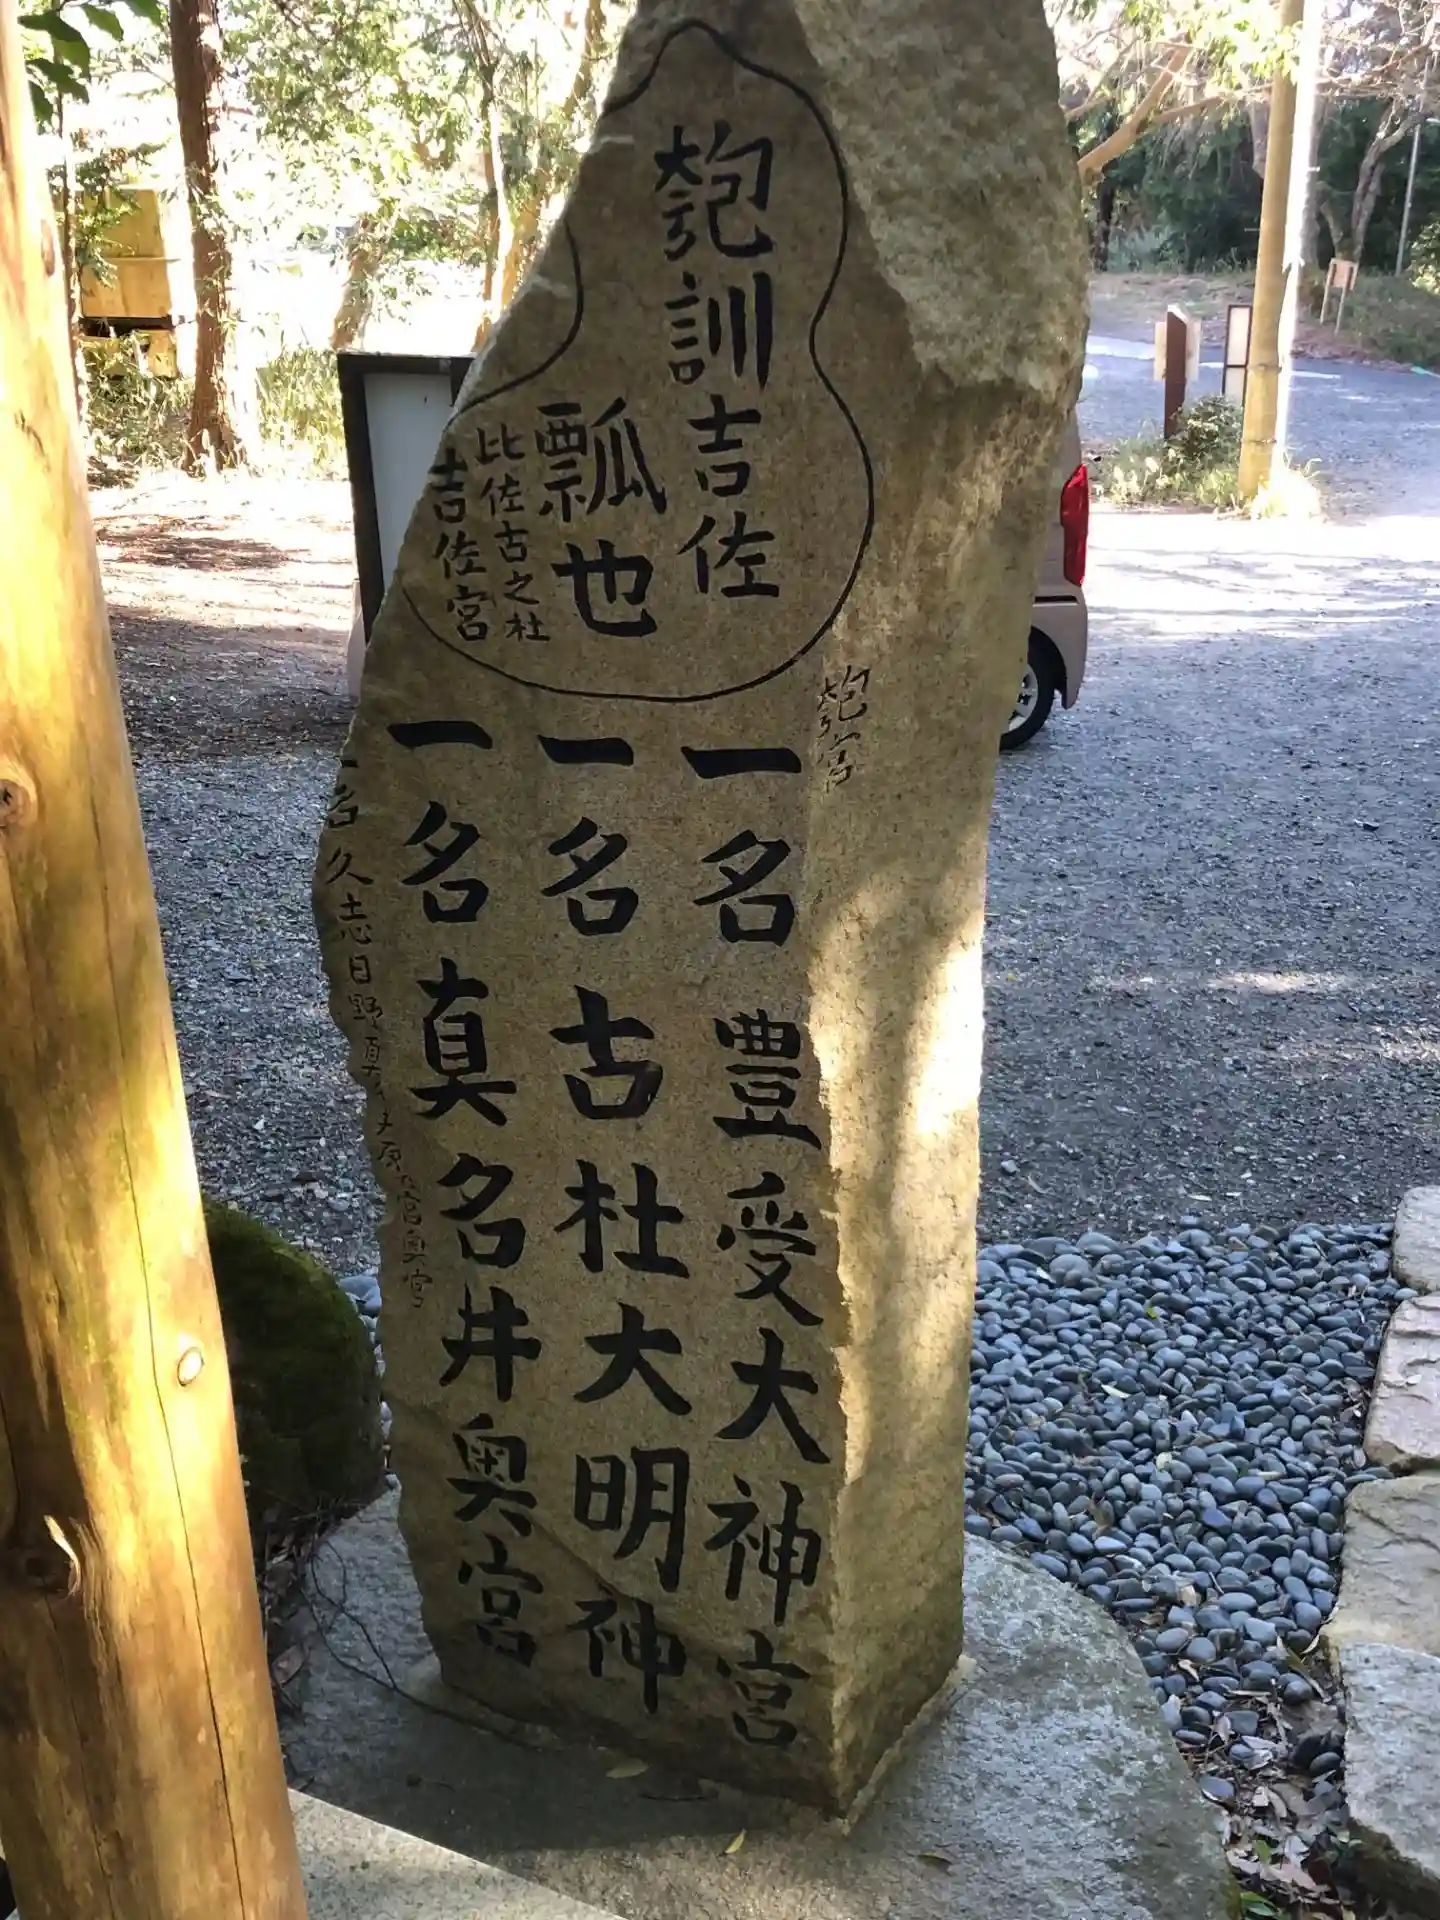 匏訓吉佐
瓢也
比佐古之社
吉佐宮
匏宮
一名豊受大神宮
一名古杜大明神
一名真名井奥宮
一名久志日野真名井原宮奥宮